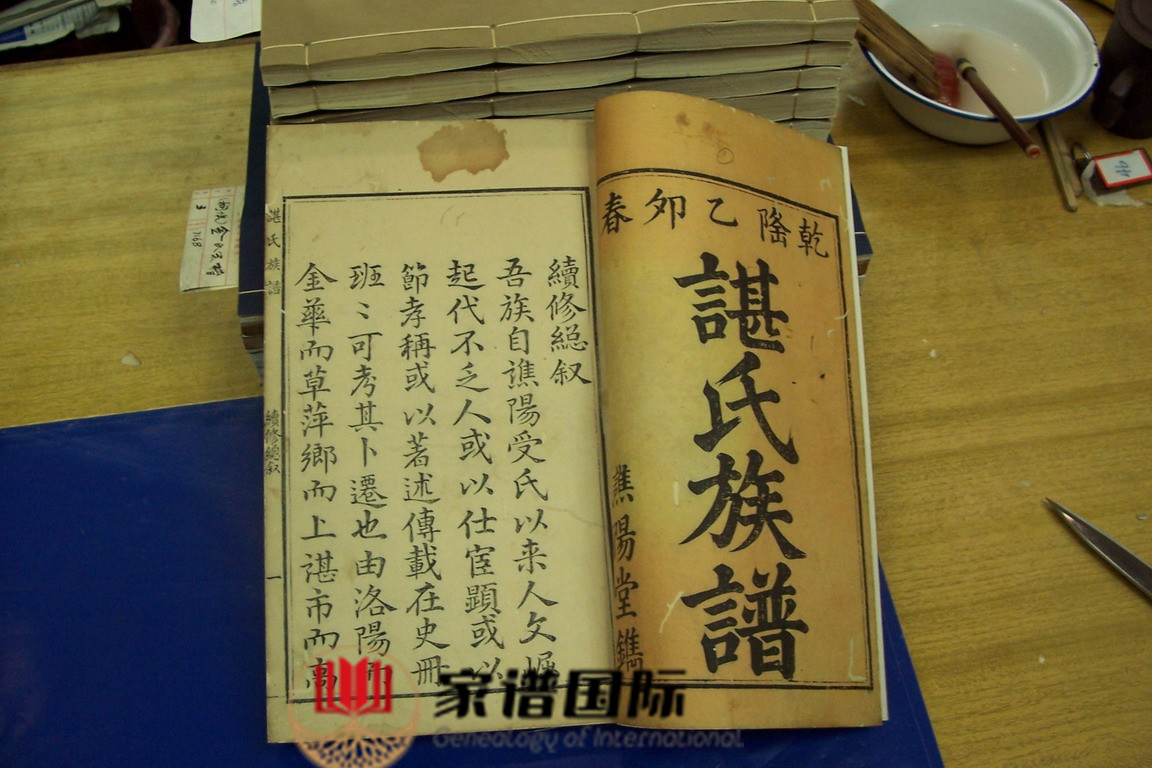 乾隆乙夘春
諶氏族譜
譙陽堂鐫
續修緫叙
吾族自譙陽受氏以来人文崛
起代不乏人或以仕宦顕或以
節孝稱或以著述傳載在史冊
班〻可考其卜遷也由洛陽而
金華而草萍鄉而上諶市而高
諶氏族譜
續修總叙
一
家谱国际
Genealogy of International